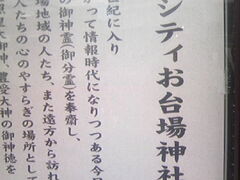 シティお台場神社
世紀に入り
かつて情報時代になりつつある今日
の御神霊(御分霊)を奉斎し、
場地域の人たち、また遠方から訪れ
人たちの心のやすらぎの場所として
照皇大御神、豊受大神の御神徳を